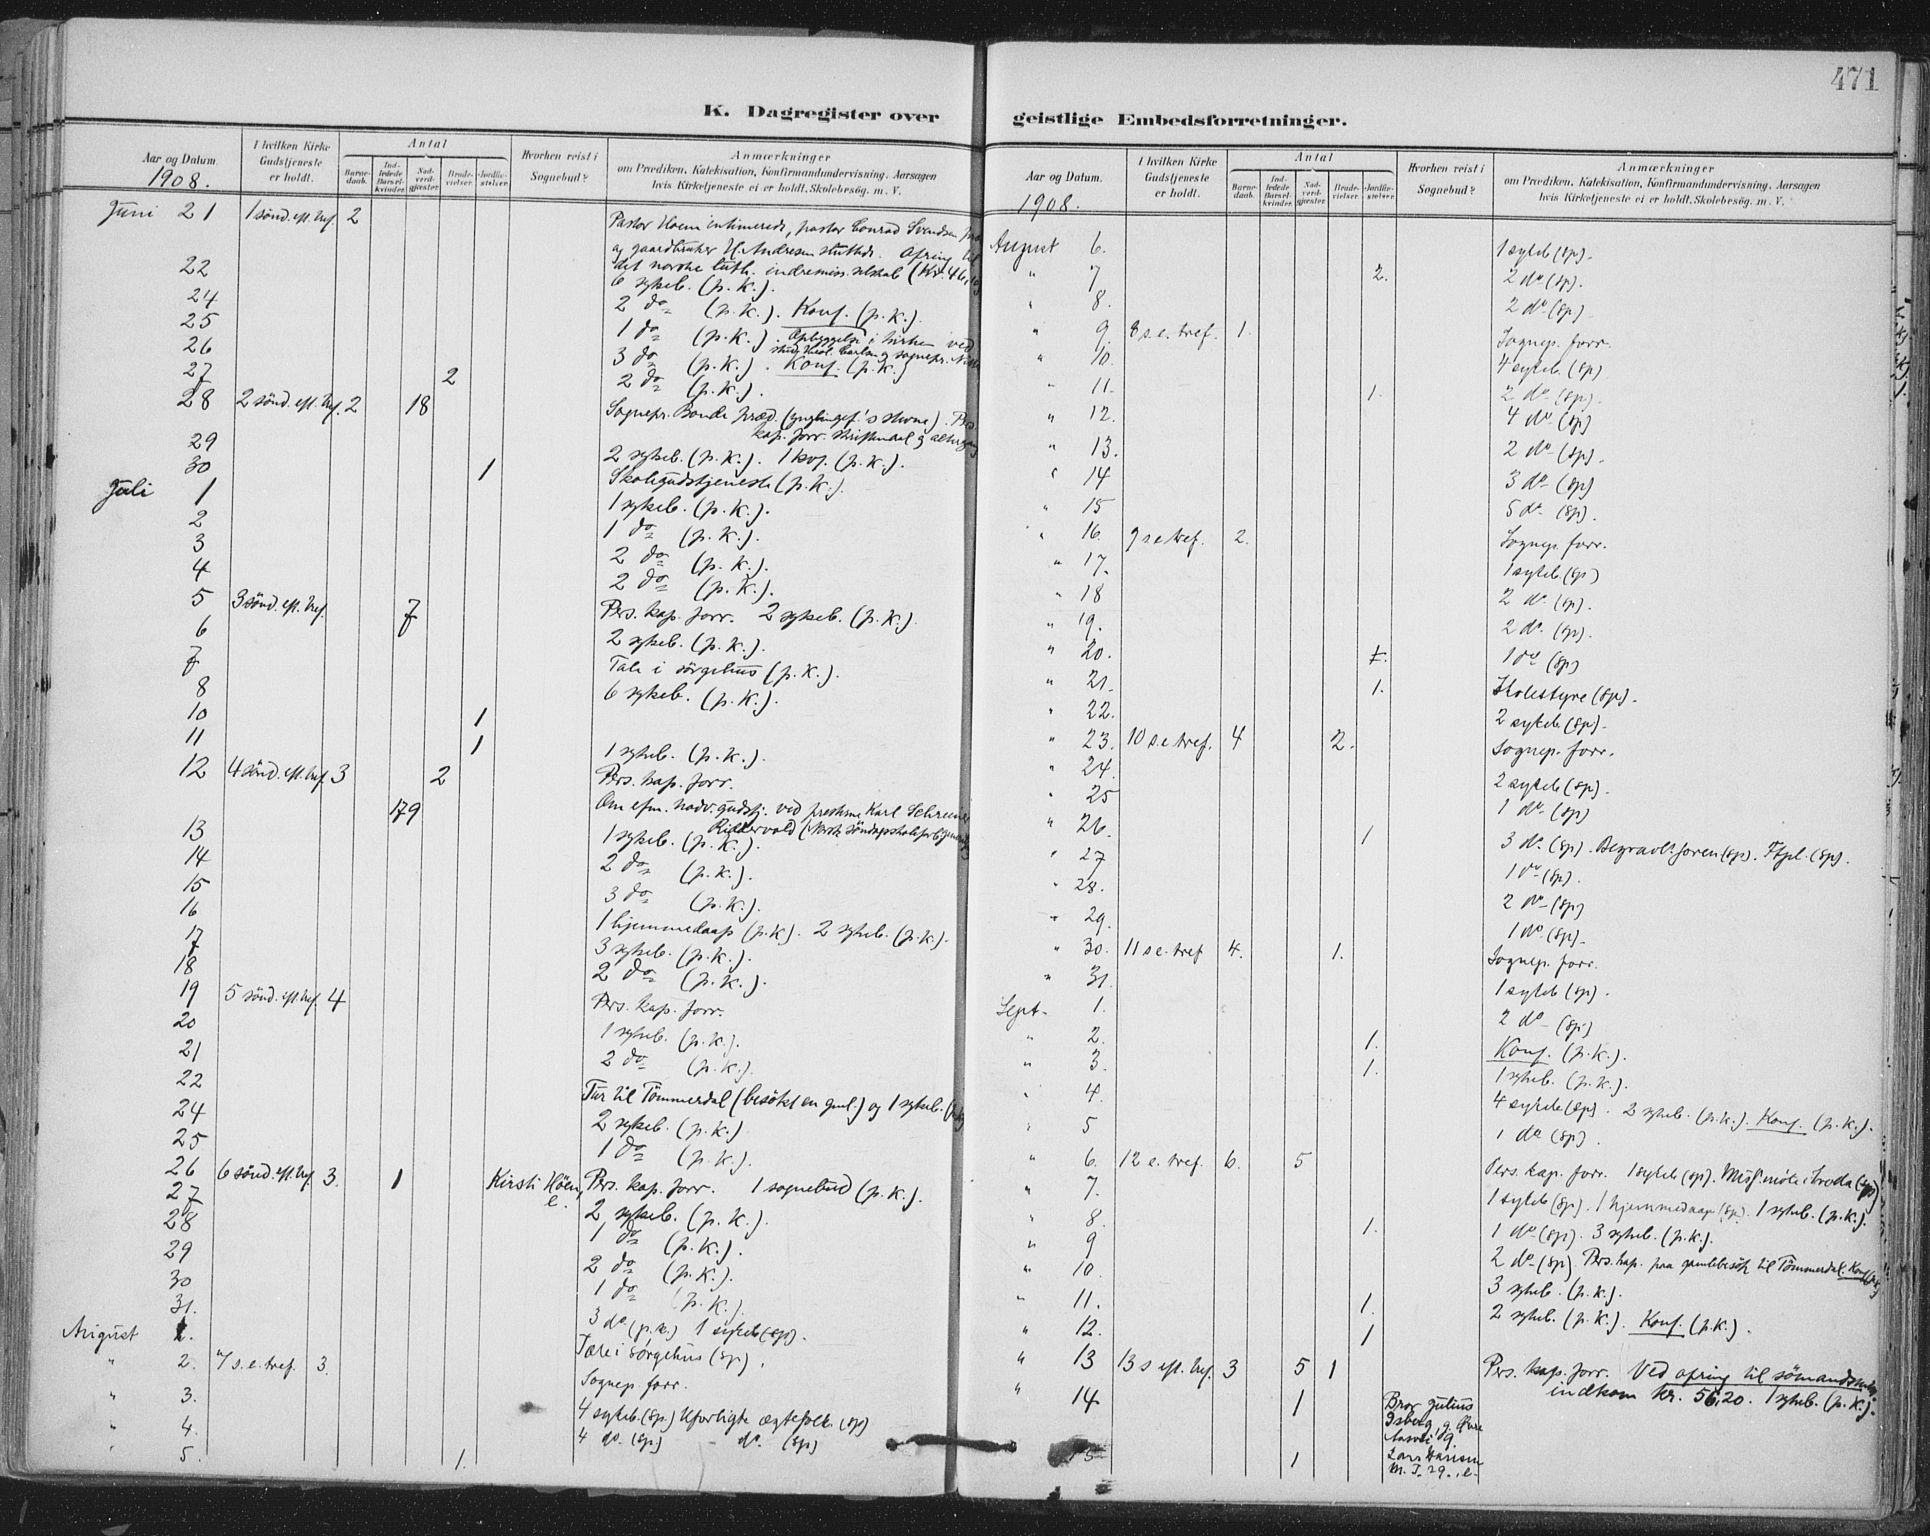 471
K. Dagregister over
geistlige Embedsforretninger.
Aar og Datum.
1908.
I hvilken Kirke Gudstjeneste er holdt.
Antal
Barnedaab.
Indledede Barselkvinder.
Nadverdgjæster.
Brudevielser.
Jordfæstelser.
Hvorhen reist i Sognebud?
Anmærkninger
om Prædiken, Katekisation, Konfirmandundervisning. Aarsagen
hvis Kirketjeneste ei er holdt. Skolebesøg. m. V.
Juni 21 1 sønd. eft. tref. 2 Pastor Hoem intimerede, pastor Conrad Svendsen
og gaardbruker H. Andresen sluttede. Ofring til
det norske luth. indremiss. selskab (Kr. 46,
22 6 sykeb. (p. K.).
24 2 do (p. K.). Konf. (p. K.).
25 1 do (p. K.). Opbyggelse i kirken ved
stud. theol. Carlsen og sognepr.
26 3 do (p. K.). Konf. (p. K.)
27 2 2 do (p. K.).
28 2 sønd. eft. tref. 2 18 Sognepr. Bonde præd. (ynglingef.'s stevne). Pers.
kap. forr. skriftemaal og altergang
29 2 sykeb. (p. K.). 1 kop. (p. K.).
30 1 Skolegudstjeneste (p. K.).
Juli 1 1 sykeb. (p. K.).
2 1 do (p. K.).
3 2 do (p. K.).
4 2 do (p. K.).
5 3 sønd. eft. tref. 7 Pers. kap. forr. 2 sykeb. (p. K.).
6 2 sykeb. (p. K.).
7 Tale i sørgehus (p. K.).
8 6 sykeb. (p. K.).
10 1
11 1 1 sykeb. (p. K.).
12 4 sønd. eft. tref. 3 2 Pers. kap. forr.
179 Om efm. nadv. gudstj. ved presterne Karl Schreiner
Riddervold (Norsk søndagsskoleforbund
13 1 sykeb. (p. K.).
14 2 do (p. K.).
15 3 do (p. K.).
16 1 hjemmedaap (p. K.). 2 sykeb. (p. K.).
17 3 sykeb. (p. K.).
18 2 do (p. K.).
19 5 sønd. eft. tref. 4 Pers. kap. forr.
20 1 sykeb. (p. K.).
21 2 do (p. K.).
22 Tur til Tømmerdal (besøkt en gml.) og 1 sykeb.
24 2 sykeb. (p. K.)
25 1 do (p. K.).
26 6 sønd. eft. tref. 3. 1 Kirsti Høen, e. Pers. kap. forr. 1 sognebud (p. K.).
27 2 sykeb. (p. K.).
28 1 do (p. K.).
29 2 do (p. K.).
30 1 do (p. K.).
31. 3 do. (p. K.) 1 sykeb (sp).
August 1. Tale i Sørgehus (sp).
" 2. 7 s. e. tref. 3. Sognep. forr.
" 3. 4 sykeb. (sp.) Uforligte ægtefolk. (sp)
" 4. 4 do. (sp) do. (sp)
" 5. 1.
Aar og Datum.
1908.
I hvilken Kirke Gudstjeneste er holdt.
Antal
Barnedaab.
Indledede Barselkvinder.
Nadverdgjæster.
Brudevielser.
Jordfæstelser.
Hvorhen reist i Sognebud?
Anmærkninger
om Prædiken, Katekisation, Konfirmandundervisning. Aarsagen
hvis Kirketjeneste ei er holdt. Skolebesøg. m. V.
August 6. 1 sykeb (sp).
" 7 2. 2 do. (sp).
" 8. 2 do. (sp).
" 9. 8 s. e. tref. 1. Sognep. forr.
" 10. 4 sykeb. (sp)
" 11. 1. 2 do. (sp).
" 12. 4 do. (sp)
" 13. 2 do. (sp).
" 14 3 do. (sp)
" 15 5 do. (sp).
" 16. 9 s e tref. 2. Sognep. forr.
" 17. 1 sykeb (sp)
" 18 2 do. (sp).
" 19. 2 do. (sp).
" 20. 1. 1 do (sp)
" 21. 1. Skolestyre (sp).
" 22. 2 sykeb (sp).
" 23. 10 s. e. tref. 4 2. Sognep. forr.
" 24. 2 sykeb (sp).
" 25 1 do (sp)
" 26. 1 3 do (sp). (sp). (sp).
" 27 1 do (sp).
" 28. 2 do (sp)
" 29. 1 do (sp).
" 30. 11 s e. tref 4. 1. Sognep. forr.
" 31. 1 sykeb (sp).
Sept. 1. 2 do (sp)
" 2. 1. Konf. (p. K.).
" 3. 1. 1 sykeb. (p. K.).
" 4. 4 sykeb (sp). 2 sykeb. (p. K.). Konf. (p. K.).
" 5 1 do (sp).
" 6. 12 e. tref. 6. 5 Pers. kap. forr. 1 sykeb (sp). Miss. møte i
" 7. 1 sykeb (sp). 1 hjemmedaap (sp). 1 sykeb. (p. K.).
" 8. 1. 1 do (sp). 3 sykeb. (p. K.).
" 9 2 do (sp) Pers. kap. paa gamlebesøk til Tømmerdal. Konf.
" 10. 3 sykeb. (p. K.).
" 11. 1. 2 sykeb. (p. K.). Konf. (p. K.).
" 12. 1
" 13 13 s eft. tref. 3 5 1 Pers. kap. forr. Ved ofring til
indkom kr. 56,20. 1 sykeb. (p. K.).
" 14 1 Bror Julius
Isberg, g. Øvre
Aasvei 19
15 1 Lars Hansen
M. T. 29., e.